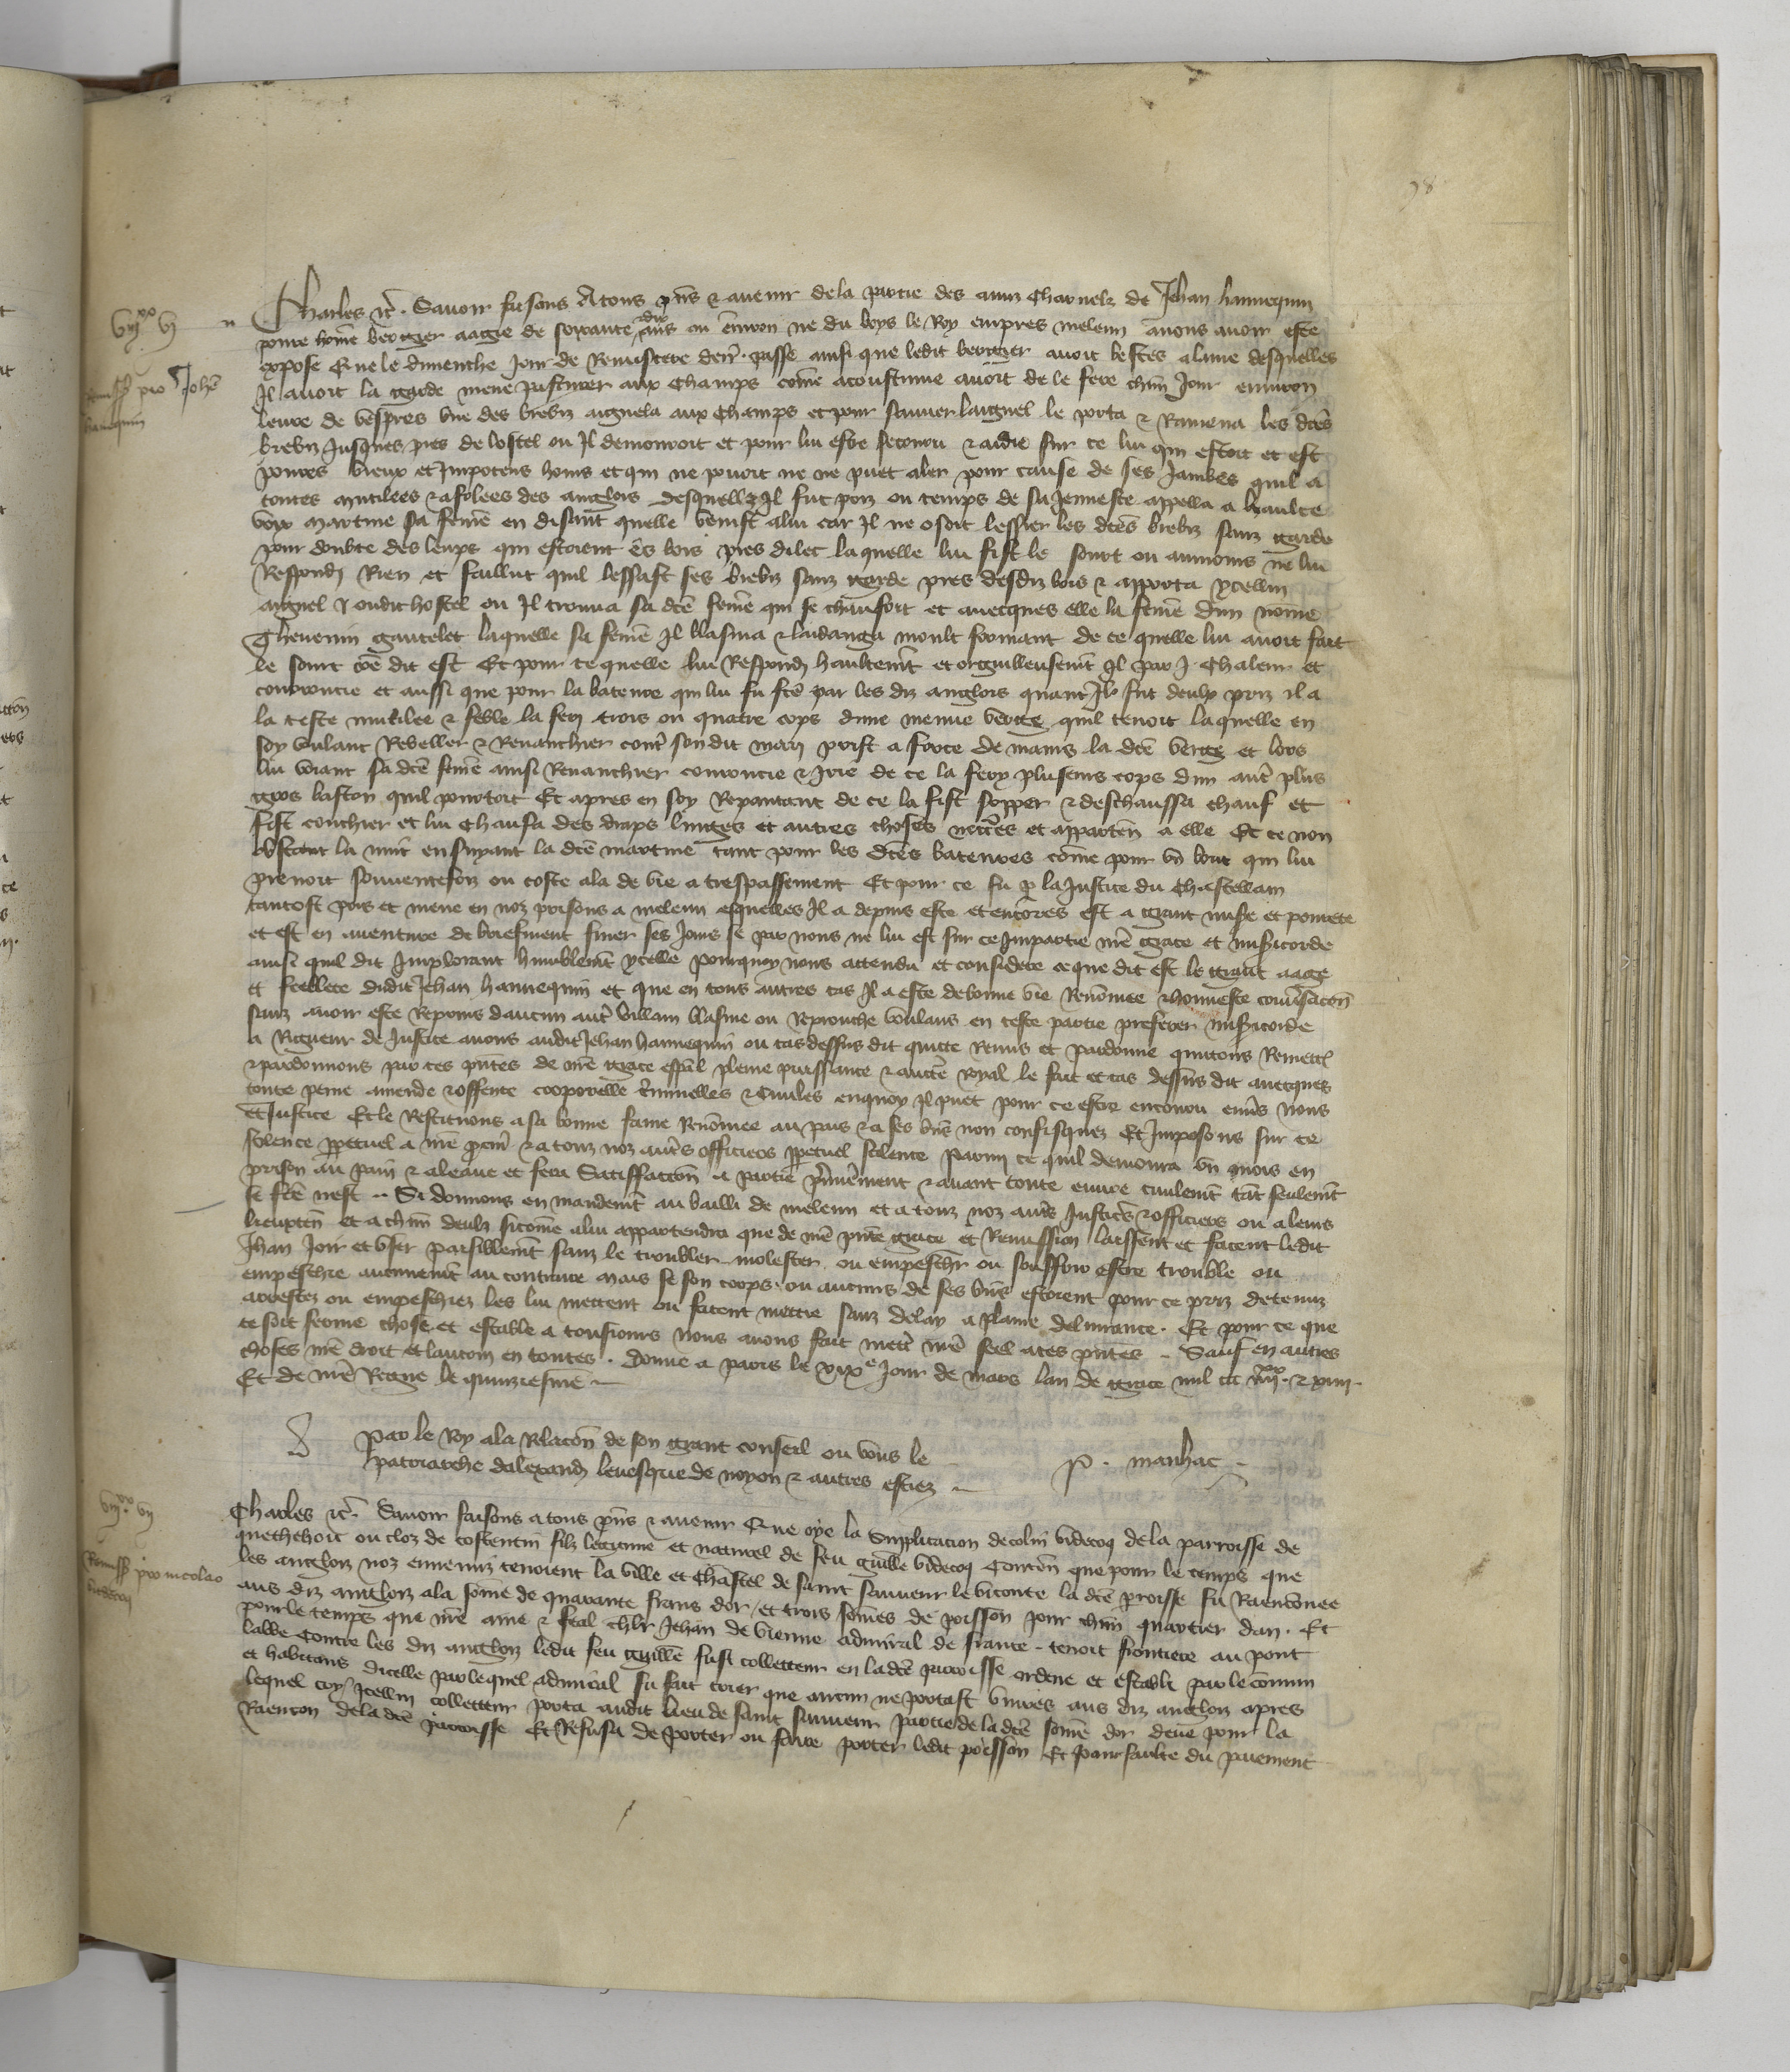 98
VII^xx VI
Remiss pro Johe
hanequin
Charles etc. Savoir faisons A tous pns & avenir de la partie des amis charnelz de Jehan hannequin
povre home bergier aagie de soixante dix ans ou environ ne du boys le Roy empres meleun avons avoir este
expose Que le dimenche jour de Reminiscere derr. passe ainsi que ledit bergier avoit bestes a laine desquelles
Il avoit la garde mene pasturer aux champs come acoustume avoit de le fere chun jour environ
leure de vespres une des brebiz aignela aux champs et pour sauver laignel le porta & Ramena les dces
brebiz jusques pres de lostel ou Il demouroit et pour lui estre secouru & aidie sur ce lui qui estoit et est
povres vieux et Impotens homs et qui ne povoit ne ne puet aler pour cause de ses jambes quil a
toutes mutilees & afolees des anglois desquellz Il fut priz ou temps de sa jennesce appella a haulte
voix martine sa feme en disant quelle venist a lui car Il ne osoit lessier les dces brebiz sanz garde
pour doubte des leups qui estoient es bois pres dilec laquelle lui fist le sourt ou aumoins ne lui
Respondi Rien et faillut quil lessast ses brebiz sanz garde pres desdiz bois & apporta ycellui
aignel oudit hostel ou Il trouva sa dce feme qui se chaufoit et avecques elle la feme dun nome
Thevenin gautelet laquelle sa feme Il blasma & laidanga moult formant de ce quelle lui avoit fait
le sourt coe dit est Et pour ce quelle lui Respondi haultemt et orguilleusemt Il par chaleur et
courroucie et aussi que pour la bateure qui lui fu fce par les diz anglois quant Il fut deulx priz il a
la teste mutilee & feble la feri trois ou quatre cops dune menue verge quil tenoit laquelle en
soy voulant Reveller & Revanchier contr sondit mari prist a force de mains la dce verge et lors
lui veant sa dce feme ainsi Revanchier courroucie & Irie de ce la fery plusieurs cops dun autr plus
gros baston quil portoit Et apres en soy Repantant de ce la fist sopper & deschaussa chauf et
fist couchier et lui chaufa des draps linges et autres choses neccres et apparten a elle Et ce non
obstant la nuit ensuyant la dce martine tant pour les dces bateures come pour un bout qui lui
prenoit souventefoiz ou coste ala de vie a trespassement Et pour ce fu p la Justice du chastellain
tantost pris et mene en noz prisons a meleun esquelles Il a depuis este et encores est a grant misere et povrete
et est en aventure de briefment finer ses jours se par nous ne lui est sur ce Impartie nre grace et misericorde
ainsi quil dit Implorant humblemt ycelle Pourquoy nous attendu et considere ce que dit est le grant aage
et feblece dudit Jehan hannequin et que en tous autres cas Il a este de bonne vie Renomee & honneste conversacon
sanz avoir este Reprins daucun autr villain blasme ou Reprouche voulans en ceste partie preferer misericorde
a Rigueur de Justice avons audit Jehan hannequin ou cas dessus dit quicte Remis et pardonne quictons Remett
& pardonnons par ces pntes de nre grace espal pleine puissance & aucte royal le fait et cas dessus dit avecques
toute peine amende & offence corporelle criminelles & Civiles en quoy Il puet pour ce estre encouru envs Nous
et Justice Et le Restituons a sa bonne fame Renomee au pais & a ses bns non confisquez Et Imposons sur ce
silence ppetuel a nre pcur & a touz noz autrs officiers ppetuel silence Parmi ce quil demoura un mois en
prison au pain & a leaue et fera satisfaccon a partie premierement & avant toute euvre civilemt tant seulemt
se fce nest Si donnons en mandemt au bailli de meleun et a touz noz autrs Justices & officiers ou a leurs
lieuxten et a chun deulx sicome a lui appartendra que de nre pnte grace et Remission laissent et facent ledit
Jhan Joir et user paisiblemt sanz le troubler molester ou empeschr ou souffrir estre trouble ou
empeschie aucunemt au contraire Mais se son corps ou aucuns de ses bns estoient pour ce priz detenuz
arrestez ou empeschiez les lui mettent ou facent mettre sanz delay a plaine delivrance. Et pour ce que
ce soit ferme chose et estable a tousjours Nous avons fait mettr nre seel a ces pntes Sauf en autres
choses nre droit et lautrui en toutes. Donne a paris le XIX^e Jour de mars lan de grace mil ccc IIII^xx & XIIII.
Et de nre Regne le quinziesme
Par le Roy a la Relacon de son grant conseil ou vous le
patriarche dalexandr levesque de noyon & autres estiez
P. manhac
VII^xx VII
Remiss pro nicolao
videcoq
Charles etc. Savoir faisons a tous pns & avenir Que oye la Supplicacion de colin videcoq de la parroisse de
quethehoit ou cloz de costentin filz legitime et naturel de feu guille videcoq Conten que pour le temps que
les anglois noz ennemiz tenoient la ville et chastel de saint sauveur le viconte la dce proisse fu Raenconnee
aus diz angloiz a la some de quarante frans dor et trois somes de poisson pour chun quartier dan. Et
pour le temps que nre ame & feal chlr Jehan de vienne admiral de france tenoit frontiere au pont
labbe contre les diz angloiz ledit feu guille fust collecteur en la dce parroisse ordene et establi par le comun
et habitans dicelle par lequel admiral fu fait crier que aucun ne portast vivres aus diz angloiz apres
lequel cry Icellui collecteur porta audit lieu de saint sauveur partie de la dce some dor deue pour la
Raencon de la dce parroisse Et Refusa de porter ou faire porter ledit poisson Et pour faulte du paiement